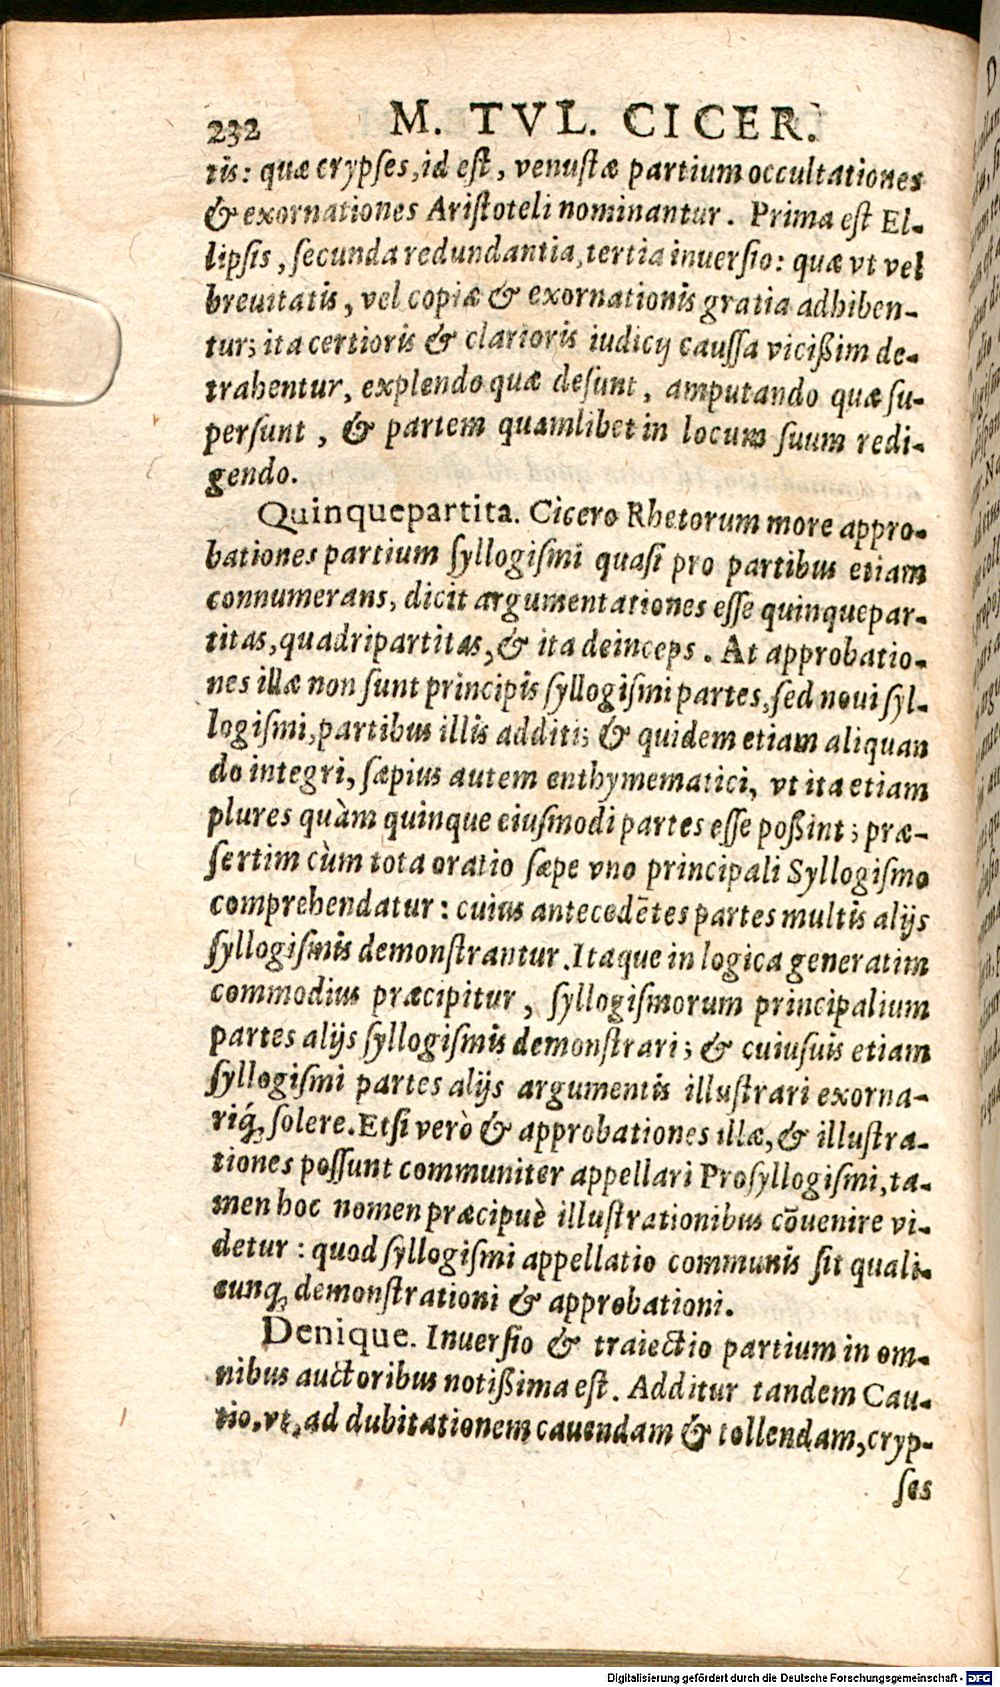 232 M. TVL. CICER.
tis: quæ crypses, id est, venustæ partium occultationes
& exornationes Aristoteli nominantur. Prima est El-
lipsis, secunda redundantia, tertia inuersio: quæ vt vel
breuitatis, vel copiæ & exornationis gratia adhiben-
tur; ita certioris & clarioris iudicij caussa vicißim de-
trahentur, explendo quæ desunt, amputando quæ su-
persunt, & partem quamlibet in locum suum redi-
gendo.
Quinquepartita. Cicero Rhetorum more appro-
bationes partium syllogismi quasi pro partibus etiam
connumerans, dicit argumentationes esse quinquepar-
titas, quadripartitas, & ita deinceps. At approbatio-
nes illæ non sunt principis syllogismi partes, sed noui syl-
logismi, partibus illis additi; & quidem etiam aliquan
do integri, sæpius autem enthymematici, vt ita etiam
plures quàm quinque eiusmodi partes esse poßint; præ-
sertim cùm tota oratio sæpe vno principali Syllogismo
comprehendatur: cuius antecedētes partes multis alijs
syllogismis demonstrantur. Itaque in logica generatim
commodius præcipitur, syllogismorum principalium
partes alijs syllogismis demonstrari; & cuiusuis etiam
syllogismi partes alijs argumentis illustrari exorna-
riq́; solere. Etsi verò & approbationes illæ, & illustra-
tiones possunt communiter appellari Prosyllogismi, ta-
men hoc nomen præcipuè illustrationibus cōuenire vi-
detur: quod syllogismi appellatio communis sit quali-
cunq; demonstrationi & approbationi.
Denique. Inuersio & traiectio partium in om-
nibus auctoribus notißima est. Additur tandem Cau-
tio, vt, ad dubitationem cauendam & tollendam, cryp-
ses
Digitalisierung gefördert durch die Deutsche Forschungsgemeinschaft - DFG